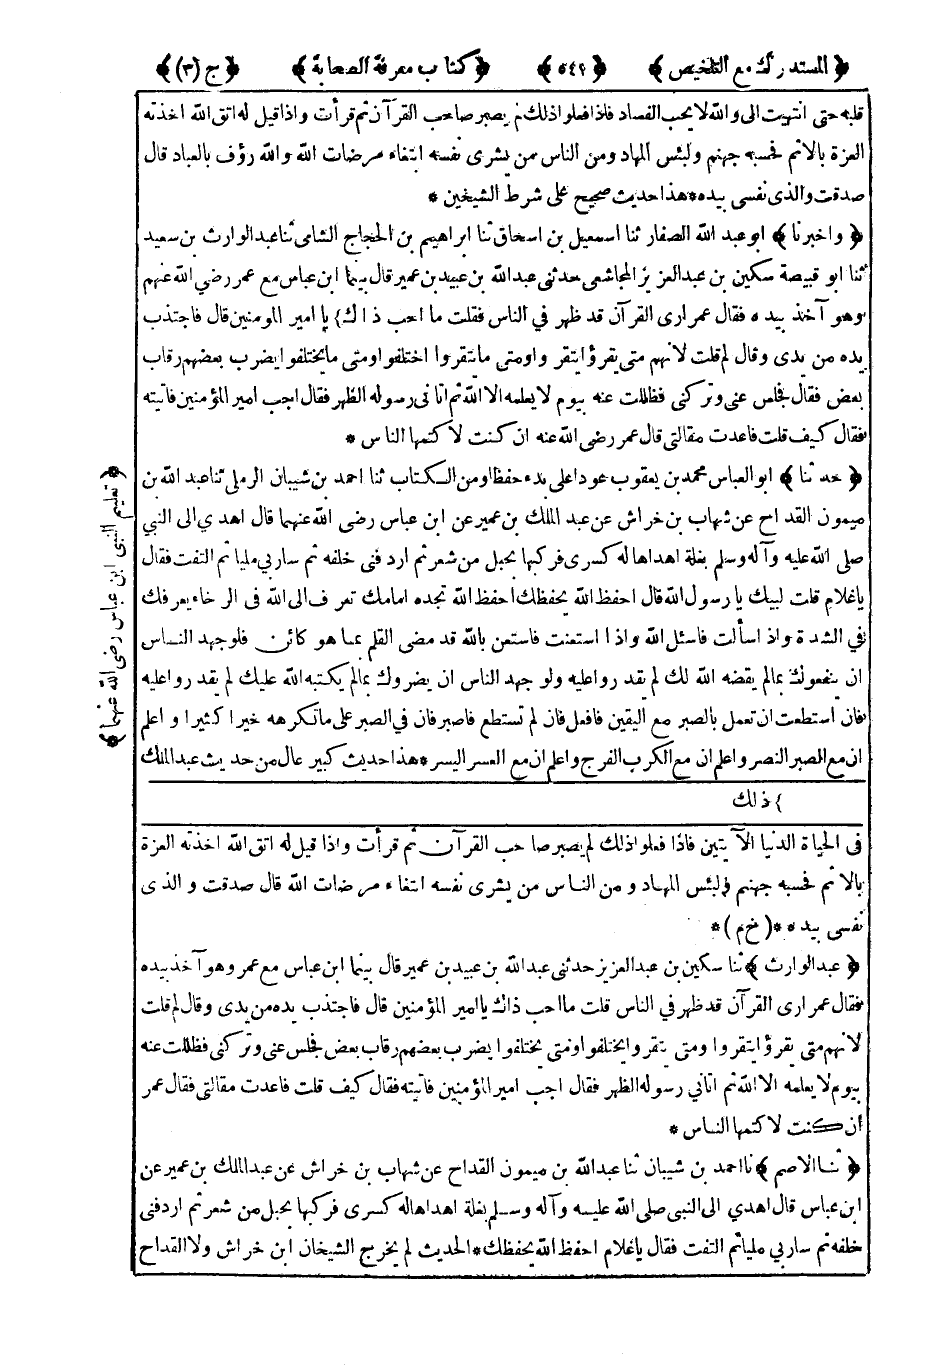 ﴿ المستدرك مع التلخيص ﴾ ﴿ ٥٤١ ﴾ ﴿ كتاب معرفة الصحابة ﴾ ﴿ ج (٣) ﴾
قلبه حتى انتهيت الى والله لا يحب الفساد فاذا فعلوا ذلك لم يصبر صاحب القرآن ثم قرأت واذا قيل له اتق الله اخذته
العزة بالاثم فحسبه جهنم ولبئس المهاد ومن الناس من يشرى نفسه ابتغاء مرضات الله والله رؤف بالعباد قال
صدقت والذى نفسى بيده * هذا حديث صحيح على شرط الشيخين *
﴿ واخبرنا ﴾ ابو عبد الله الصفار ثنا اسمعيل بن اسحاق ثنا ابراهيم بن الحجاج الشامى ثنا عبد الوارث بن سعيد
ثنا ابو قبيصة سكين بن عبد العزيز المجاشعى حدثنى عبد الله بن عبيد بن عمير قال بينما ابن عباس مع عمر رضي الله عنهم
وهو آخذ بيده فقال عمر ارى القرآن قد ظهر في الناس فقلت ما احب ذاك} يا امير المومنين قال فاجتذب
يده من يدى وقال لم قلت لانهم متى يقرؤا ينقروا ومتى ما ينقروا اختلفوا ومتى ما يختلفوا يضرب بعضهم رقاب
بعض فقال فجلس عنى وتركنى فظللت عنه بيوم لا يعلمه الا الله ثم اتانى رسوله الظهر فقال اجب امير المؤمنين فاتيته
فقال كيف قلت فاعدت مقالتى قال عمر رضى الله عنه ان كنت لاكتمها الناس *
﴿ حدثنا ﴾ ابو العباس محمد بن يعقوب عودا على بدء حفظا ومن الكتاب ثنا احمد بن شيبان الرملى ثنا عبد الله بن
ميمون القداح عن شهاب بن خراش عن عبد الملك بن عمير عن ابن عباس رضى الله عنهما قال اهدي الى النبي
صلى الله عليه وآله وسلم بغلة اهداها له كسرى فركبها بحبل من شعر ثم اردفنى خلفه ثم سار بي مليا ثم التفت فقال
يا غلام قلت لبيك يا رسول الله قال احفظ الله يحفظك احفظ الله تجده امامك تعرف الى الله فى الرخاء يعرفك
في الشدة واذا سألت فاسئل الله واذا استعنت فاستعن بالله قد مضى القلم بما هو كائن فلو جهد الناس
ان ينفعوك بمالم يقضه الله لك لم يقدروا عليه ولو جهد الناس ان يضروك بمالم يكتبه الله عليك لم يقدروا عليه
فان استطعت ان تعمل بالصبر مع اليقين فافعل فان لم تستطع فاصبر فان في الصبر على ما تكرهه خيرا كثيرا واعلم
ان مع الصبر النصر واعلم ان مع الكرب الفرج واعلم ان مع العسر اليسر * هذا حديث كبير عال من حديث عبد الملك
﴿ تعليم النبى ابن عباس رضى الله عنهما ﴾
} ذلك
فى الحياة الدنيا الآيتين فاذا فعلوا ذلك لم يصبر صاحب القرآن ثم قرأت واذا قيل له اتق الله اخذته العزة
بالاثم فحسبه جهنم ولبئس المهاد ومن الناس من يشرى نفسه ابتغاء مرضات الله قال صدقت والذى
نفسى بيده * ( خ م ) *
﴿ عبد الوارث ﴾ ثنا سكين بن عبد العزيز حدثنى عبد الله بن عبيد بن عمير قال بينما ابن عباس مع عمر وهو آخذ بيده
فقال عمر ارى القرآن قد ظهر في الناس قلت ما احب ذاك يا امير المؤمنين قال فاجتذب يده من يدى وقال لم قلت
لانهم متى يقرؤا ينقروا ومتى ينقروا يختلفوا ومتى يختلفوا يضرب بعضهم رقاب بعض فجلس عنى وتركنى فظللت عنه
بيوم لا يعلمه الا الله ثم اتاني رسوله الظهر فقال اجب امير المؤمنين فاتيته فقال كيف قلت فاعدت مقالتى فقال عمر
ان كنت لاكتمها الناس *
﴿ ثنا الاصم ﴾ نا احمد بن شيبان ثنا عبد الله بن ميمون القداح عن شهاب بن خراش عن عبد الملك بن عمير عن
ابن عباس قال اهدي الى النبى صلى الله عليه وآله وسلم بغلة اهداها له كسرى فركبها بحبل من شعر ثم اردفنى
خلفه ثم سار بي مليا ثم التفت فقال يا غلام احفظ الله يحفظك * الحديث لم يخرج الشيخان ابن خراش ولا القداح